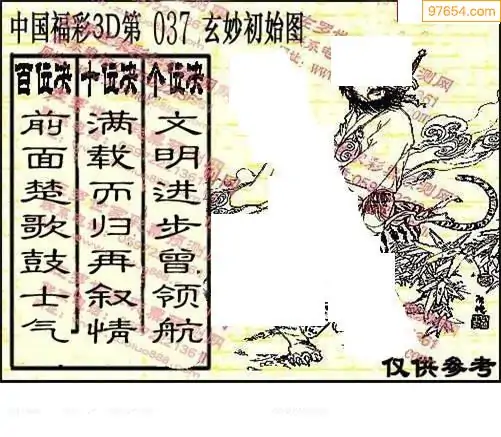 97654.com
中国福彩3D第 037 玄妙初始图
百位决 十位决 个位决
前面楚歌鼓士气
满载而归再叙情
文明进步曾领航
仅供参考